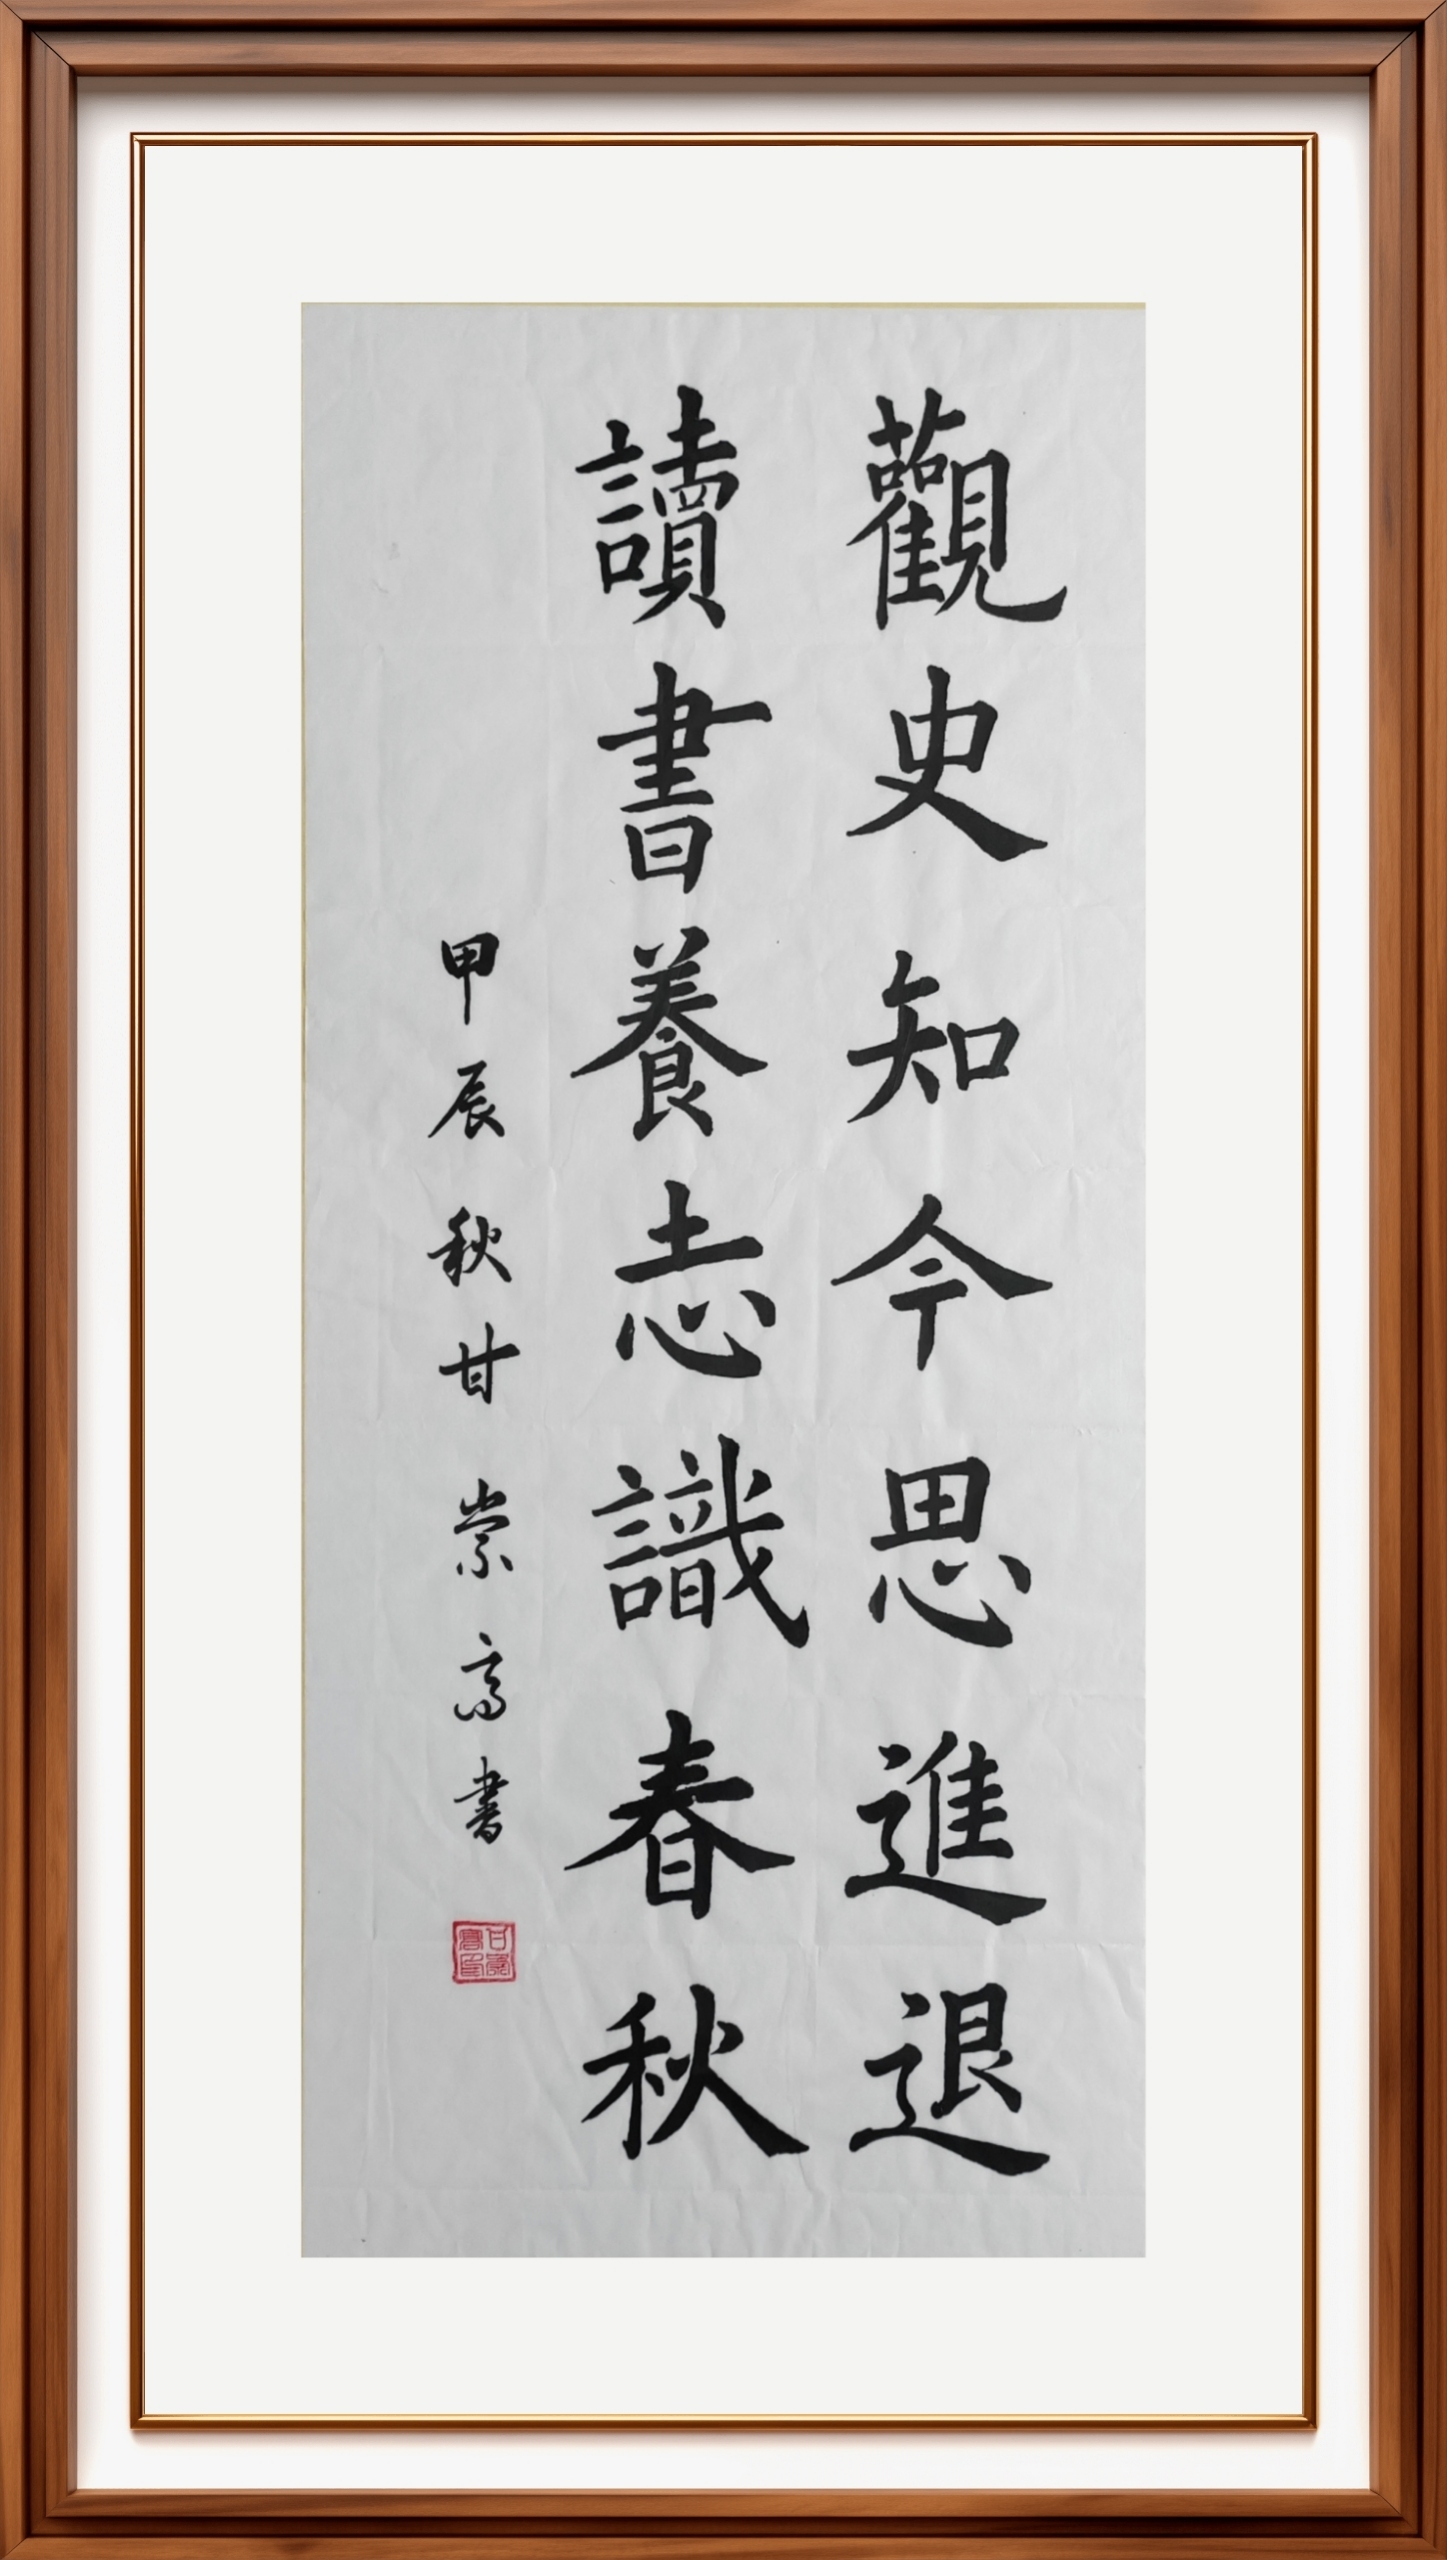 觀史知今思進退
讀書養志識春秋
甲辰秋甘崇高書
甘崇高印